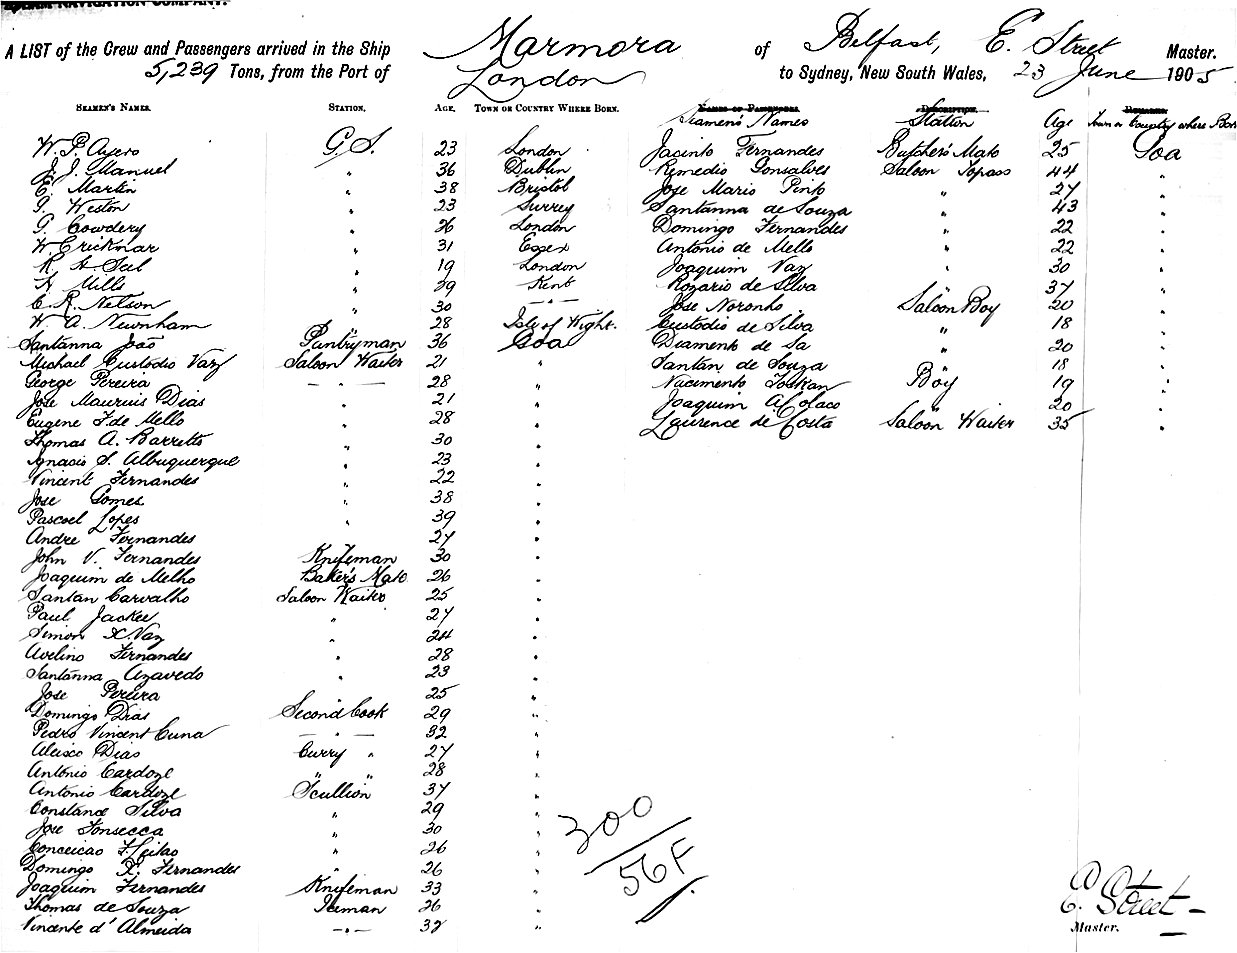 STEAM NAVIGATION COMPANY.
A LIST of the Crew and Passengers arrived in the Ship Marmora of Belfast, E. Street Master.
5,239 Tons, from the Port of London to Sydney, New South Wales, 23 June 1905.
SEAMEN'S NAMES. STATION. AGE. TOWN OR COUNTRY WHERE BORN.
W. P. Ayers G. S. 23 London
J. J. Manuel " 36 Dublin
E. Martin " 38 Bristol
G. Weston " 23 Surrey
G. Cowdery " 26 London
W. Crickmar " 31 Essex
R. H. Seal " 19 London
A. Mills " 29 Kent
C. R. Nelson " 30 — " —
W. A. Newnham " 28 Isle of Wight.
Santanna João Pantryman 36 Goa
Michael Custodio Vaz Saloon Waiter 21 "
George Pereira — " — 28 "
Jose Mauruis Dias " 21 "
Eugene F. de Mello " 28 "
Thomas A. Barretto " 30 "
Ignacio S. Albuquerque " 23 "
Vincent Fernandes " 22 "
Jose Gomes " 38 "
Pascoel Lopes " 39 "
Andre Fernandes 27 "
John V. Fernandes Knifeman 30 "
Joaquim de Melho Baker's Mate 26 "
Santan Carvalho Saloon Waiter 25 "
Paul Jackee " 27 "
Simon X. Vaz " 24 "
Avelino Fernandes " 28 "
Santanna Azavedo " 23 "
Jose Pereira " 25 "
Domingo Dias Second Cook 29 "
Pedro Vincent Cuna — " — 32 "
Aleixo Dias Curry " 27 "
Antonio Cardoze " " 28 "
Antonio Cardoze Scullion 37 "
Constance Silva " 29 "
Jose Fonsecca " 30 "
Conceicao F. Leitao " 26 "
Domingo X. Fernandes " 26 "
Joaquim Fernandes Knifeman 33 "
Thomas de Souza Iceman 26 "
Vincente d'Almeida — " — 32 "
NAMES OF PASSENGERS. DESCRIPTION. REMARKS.
Seamen's Names Station Age Town or Country where Born
Jacinto Fernandes Butcher's Mate 25 Goa
Remedio Gonsalves Saloon Topass 44 "
Jose Mario Pinto " 27 "
Santanna de Souza " 43 "
Domingo Fernandes " 22 "
Antonio de Mello " 22 "
Joaquim Vaz " 30 "
Rozario de Silva " 37 "
Jose Noronho Saloon Boy 20 "
Custodio de Silva " 18 "
Diamento de Sa " 20 "
Santan de Souza " 18 "
Nacimento Toskan Boy 19 "
Joaquim A Colaco " 20 "
Laurence de Costa Saloon Waiter 35 "
300
56F
E. Street
Master.